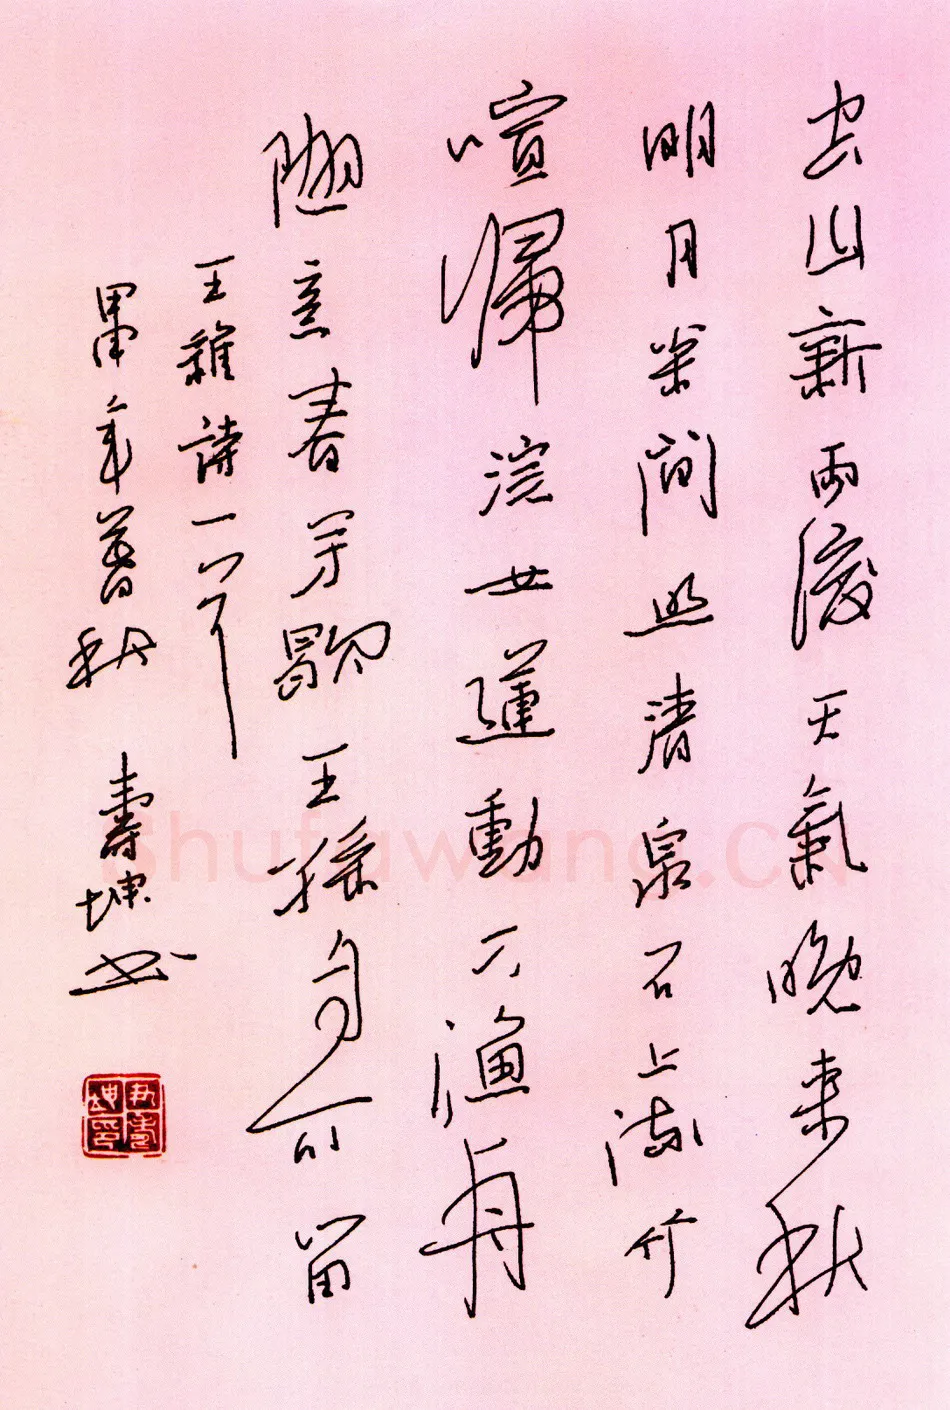 空山新雨後天氣晚來秋
明月松間照清泉石上流竹
喧歸浣女蓮動下漁舟
隨意春芳歇王孫自可留
王維詩一首
甲申年暮秋 壽坤書
Shufawang.CN